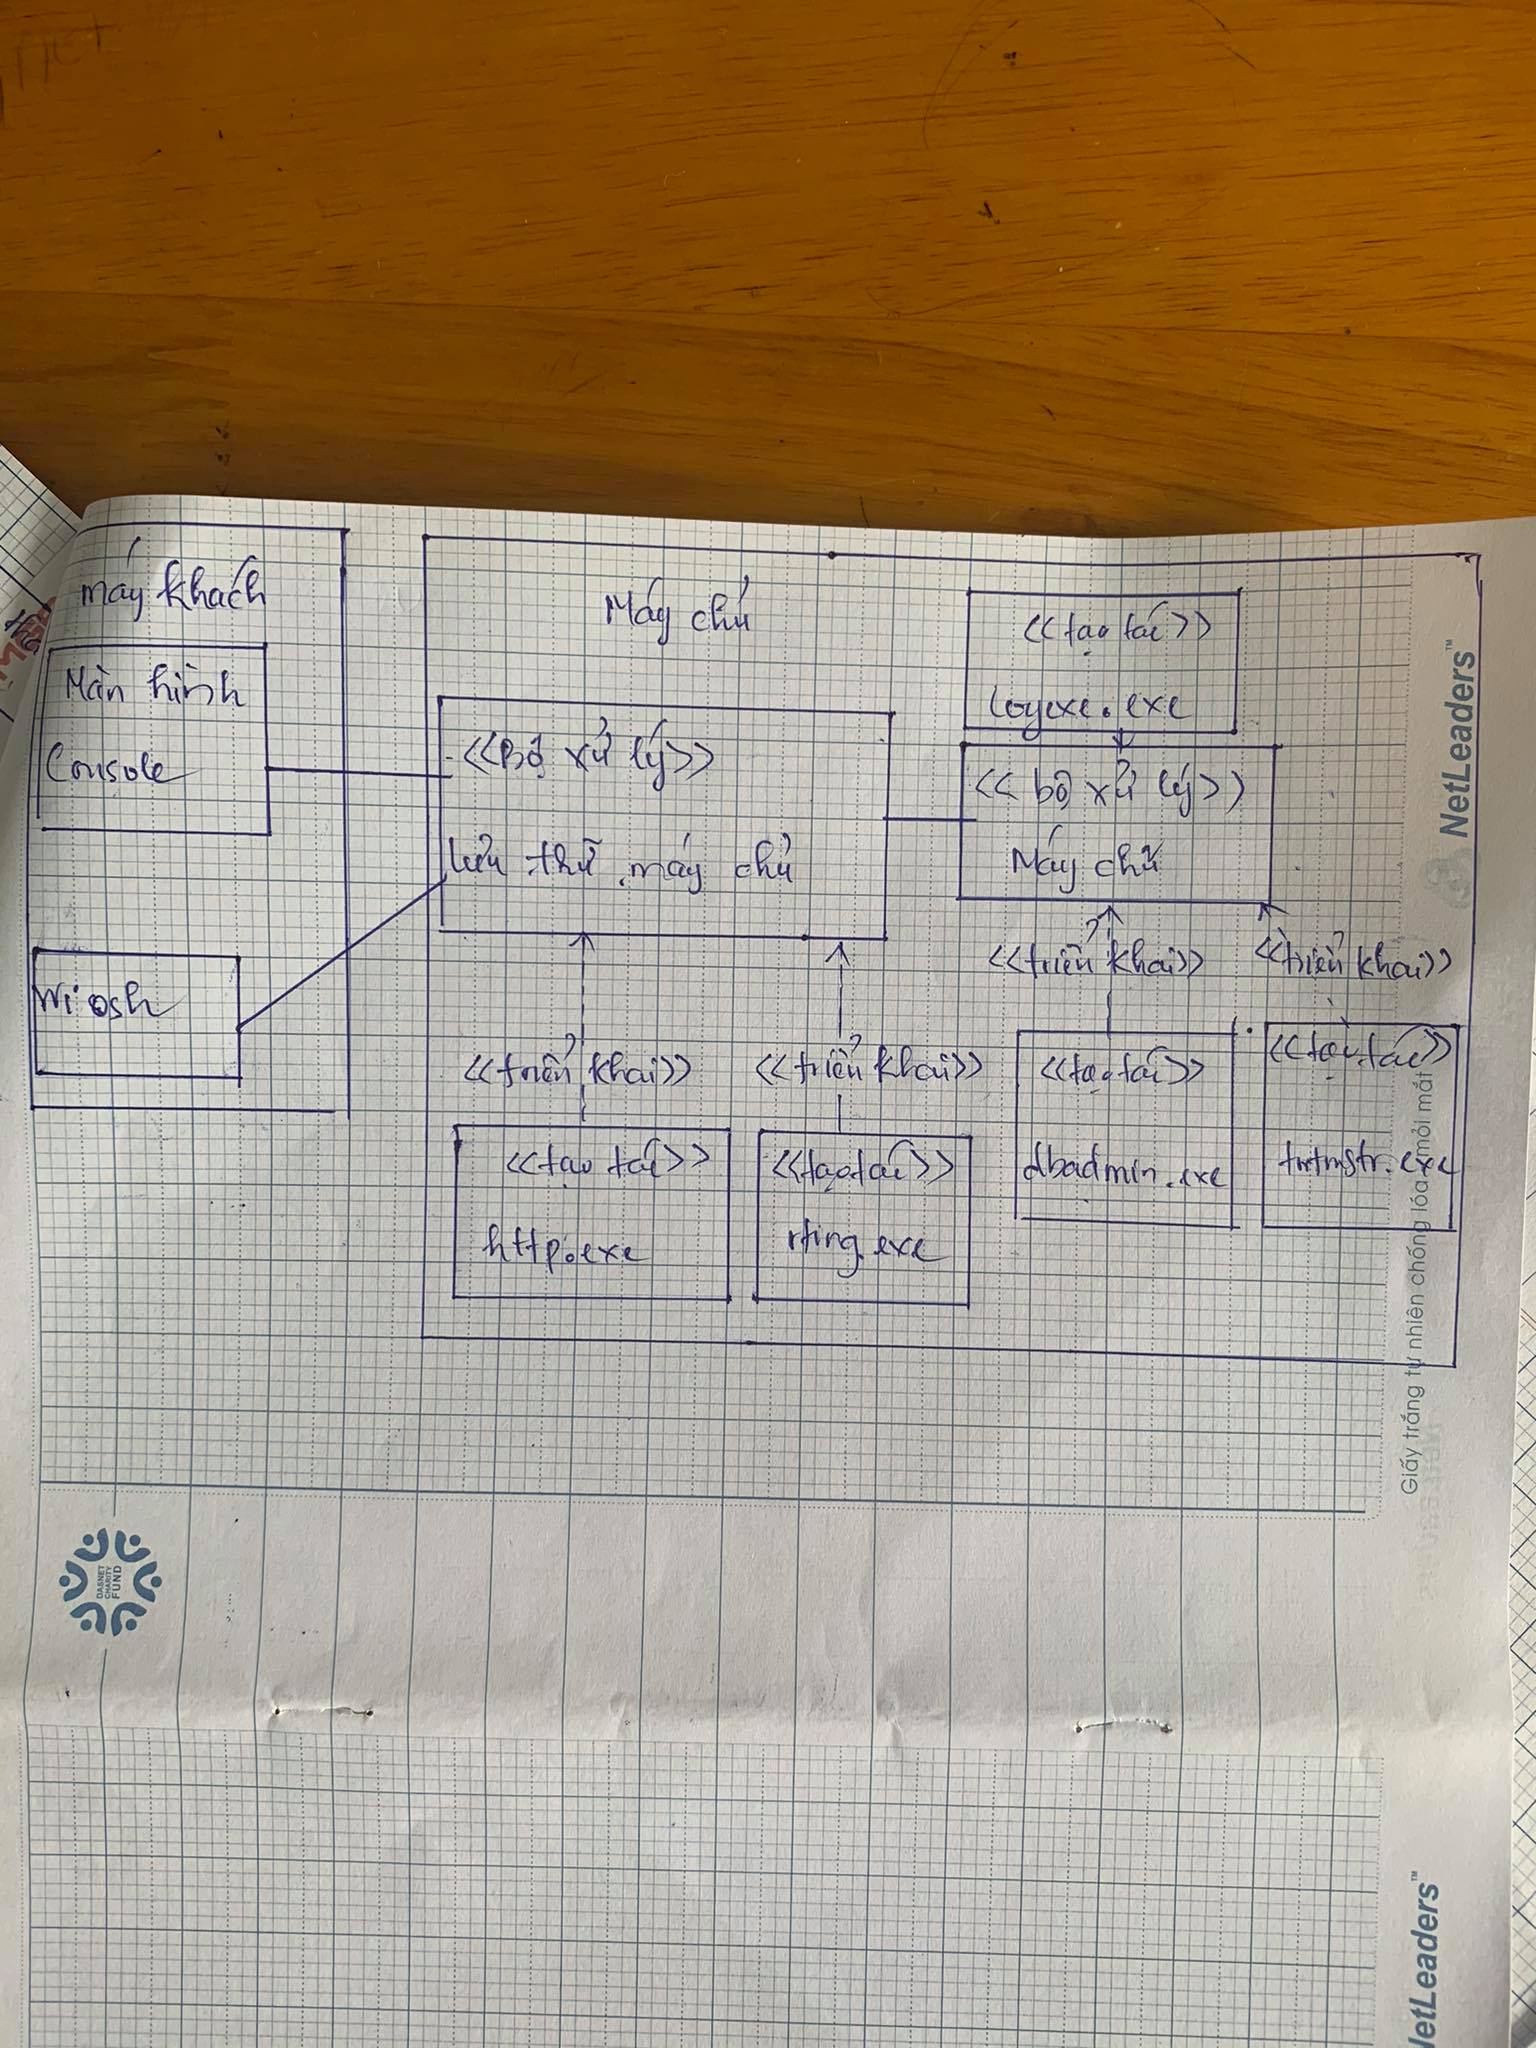 máy khách
Màn hình
Console
Wi osh
Máy chủ
<<Bộ xử lý>>
lưu thữ máy chủ
<<tạo tác>>
logexe.exe
<<bộ xử lý>>
Máy chủ
<<triển khai>>
<<triển khai>>
<<triển khai>>
<<triển khai>>
<<tạo tác>>
http.exe
<<tạo tác>>
rting.exe
<<tạo tác>>
dbadmin.exe
<<tạo tác>>
tntmstr.exe
NetLeaders™
Giấy trắng tự nhiên chống lóa, mỏi mắt
DASNET
CHARITY
FUND
NetLeaders™